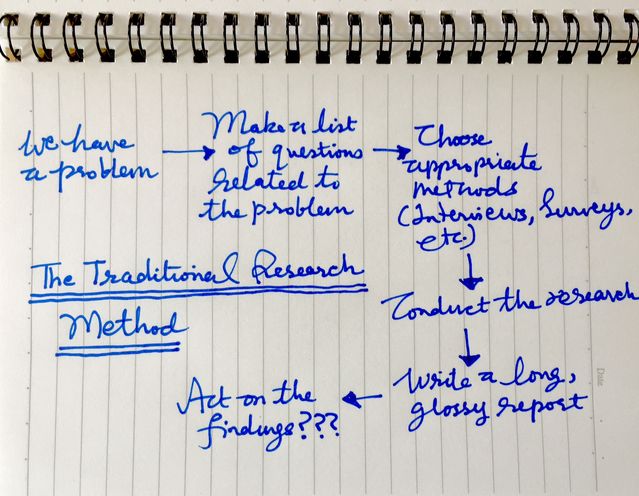 We have
a problem
Make a list
of questions
related to
the problem
Choose
appropriate
methods
(Interviews, Surveys,
etc.)
The Traditional Research
Method
Conduct the research
Write a long,
glossy report
Act on the
findings???
Date